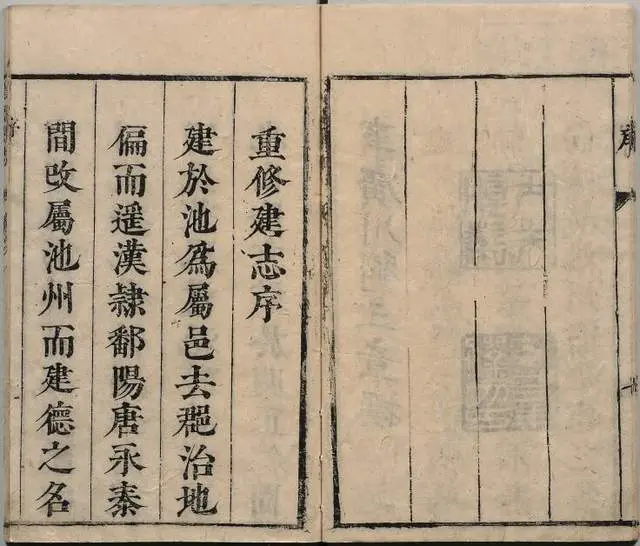 重修建志序
建於池爲屬邑去郡治地
偏而遥漢隷鄱陽唐永泰
間攺屬池州而建德之名